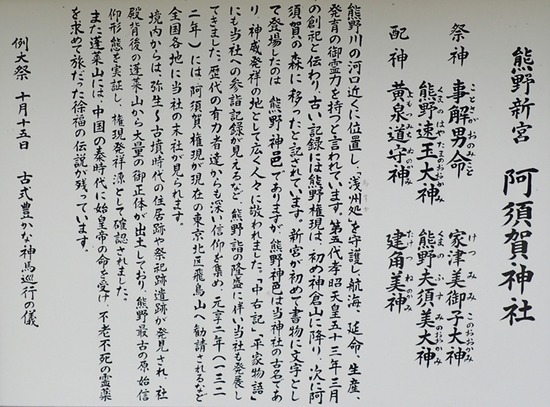 熊野新宮 阿須賀神社
祭神 事解男命 家津美御子大神
ことさかおのみこと けつみみこのおおかみ
熊野速玉大神 熊野夫須美大神
くまのはやたまのおおかみ くまのふすみのおおかみ
配神 黄泉道守神 建角美神
たけつぬみのかみ
熊野川の河口近くに位置し、「浅州処」を守護し、航海、延命、生産、
発育の御霊力を持つと言われています。第五代孝昭天皇五十三年三月
の創祀と伝わり、古い記録には熊野権現は、初め神倉山に降り、次に阿
須賀の森に移ったと記されています。新宮が初めて書物に文字とし
て登場したのは 熊野神邑でありますが、熊野神邑は当神社の古名であ
り、神威発祥の地として広く人々に敬われました。「中右記」「平家物語」
にも当社への参詣記録が見えるなど、熊野詣の隆盛に伴い当社も発展し
てきました。歴代の有力者達からも深い信仰を集め、元亨二年(一三二
二年)には、阿須賀権現が現在の東京北区飛鳥山へ勧請されるなど
全国各地に当社の末社が見られます。
境内からは、弥生~古墳時代の住居跡や祭祀跡遺跡が発見され、社
殿背後の蓬莱山から大量の御正体が出土しており、熊野最古の原始信
仰形態を実証し、権現発祥源として確認されました。
また蓬莱山には、中国の秦時代に始皇帝の命を受け、不老不死の霊薬
を求めて旅だった徐福の伝説が残っています。
例大祭 十月十五日 古式豊かな神馬巡行の儀